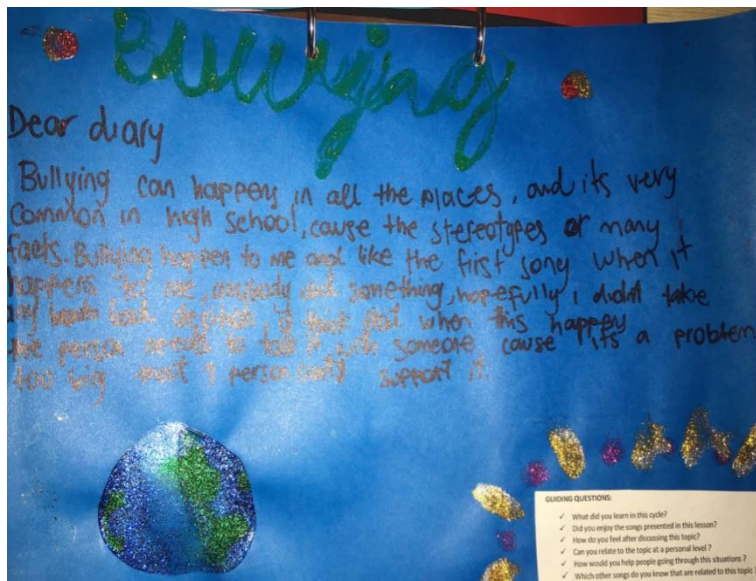 Bullying
Dear diary
Bullying can happen in all the places, and its very
common in high school, cause the stereotypes or many
facts. Bullying happen to me and like the first song when it
happens to me, anybody did something, hopefully i didn't take
any bad decision, i think that when this happen
the person needs to talk it with someone cause its a problem
too big that 1 person can't support it.
GUIDING QUESTIONS:
✓ What did you learn in this cycle?
✓ Did you enjoy the songs presented in this lesson?
✓ How do you feel after discussing this topic?
✓ Can you relate to the topic at a personal level ?
✓ How would you help people going through this situations ?
✓ Which other songs do you know that are related to this topic?